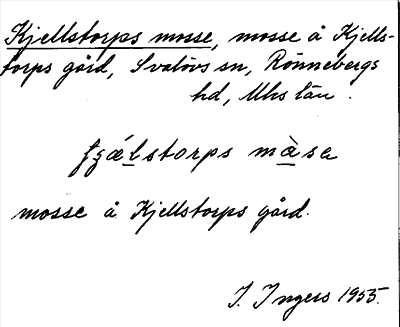 Kjellstorps mosse, mosse å Kjells-
torps gård, Svalövs sn, Rönnebergs
hd, Mhs län.
mosse å Kjellstorps gård.
I. Ingers 1955.